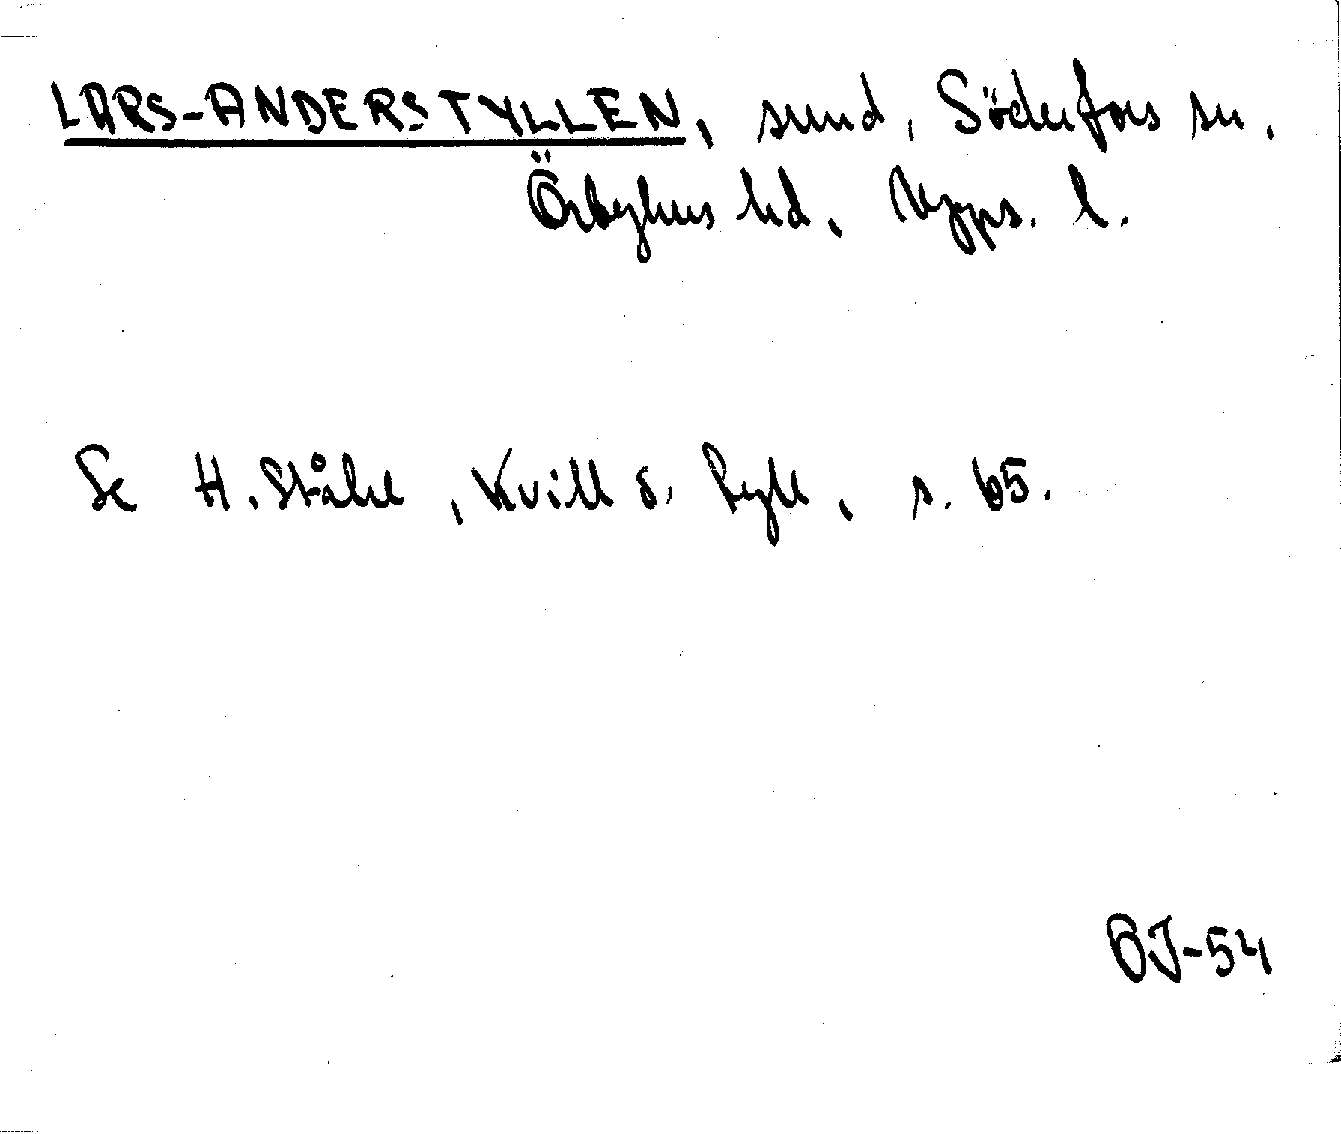 LARS-ANDERSTYLLEN, sund, Söderfors sn.
Örbyhus hd. Upps. l.
Se H. Ståhl, Kvill o. Tyll, s. 65.
BJ-54